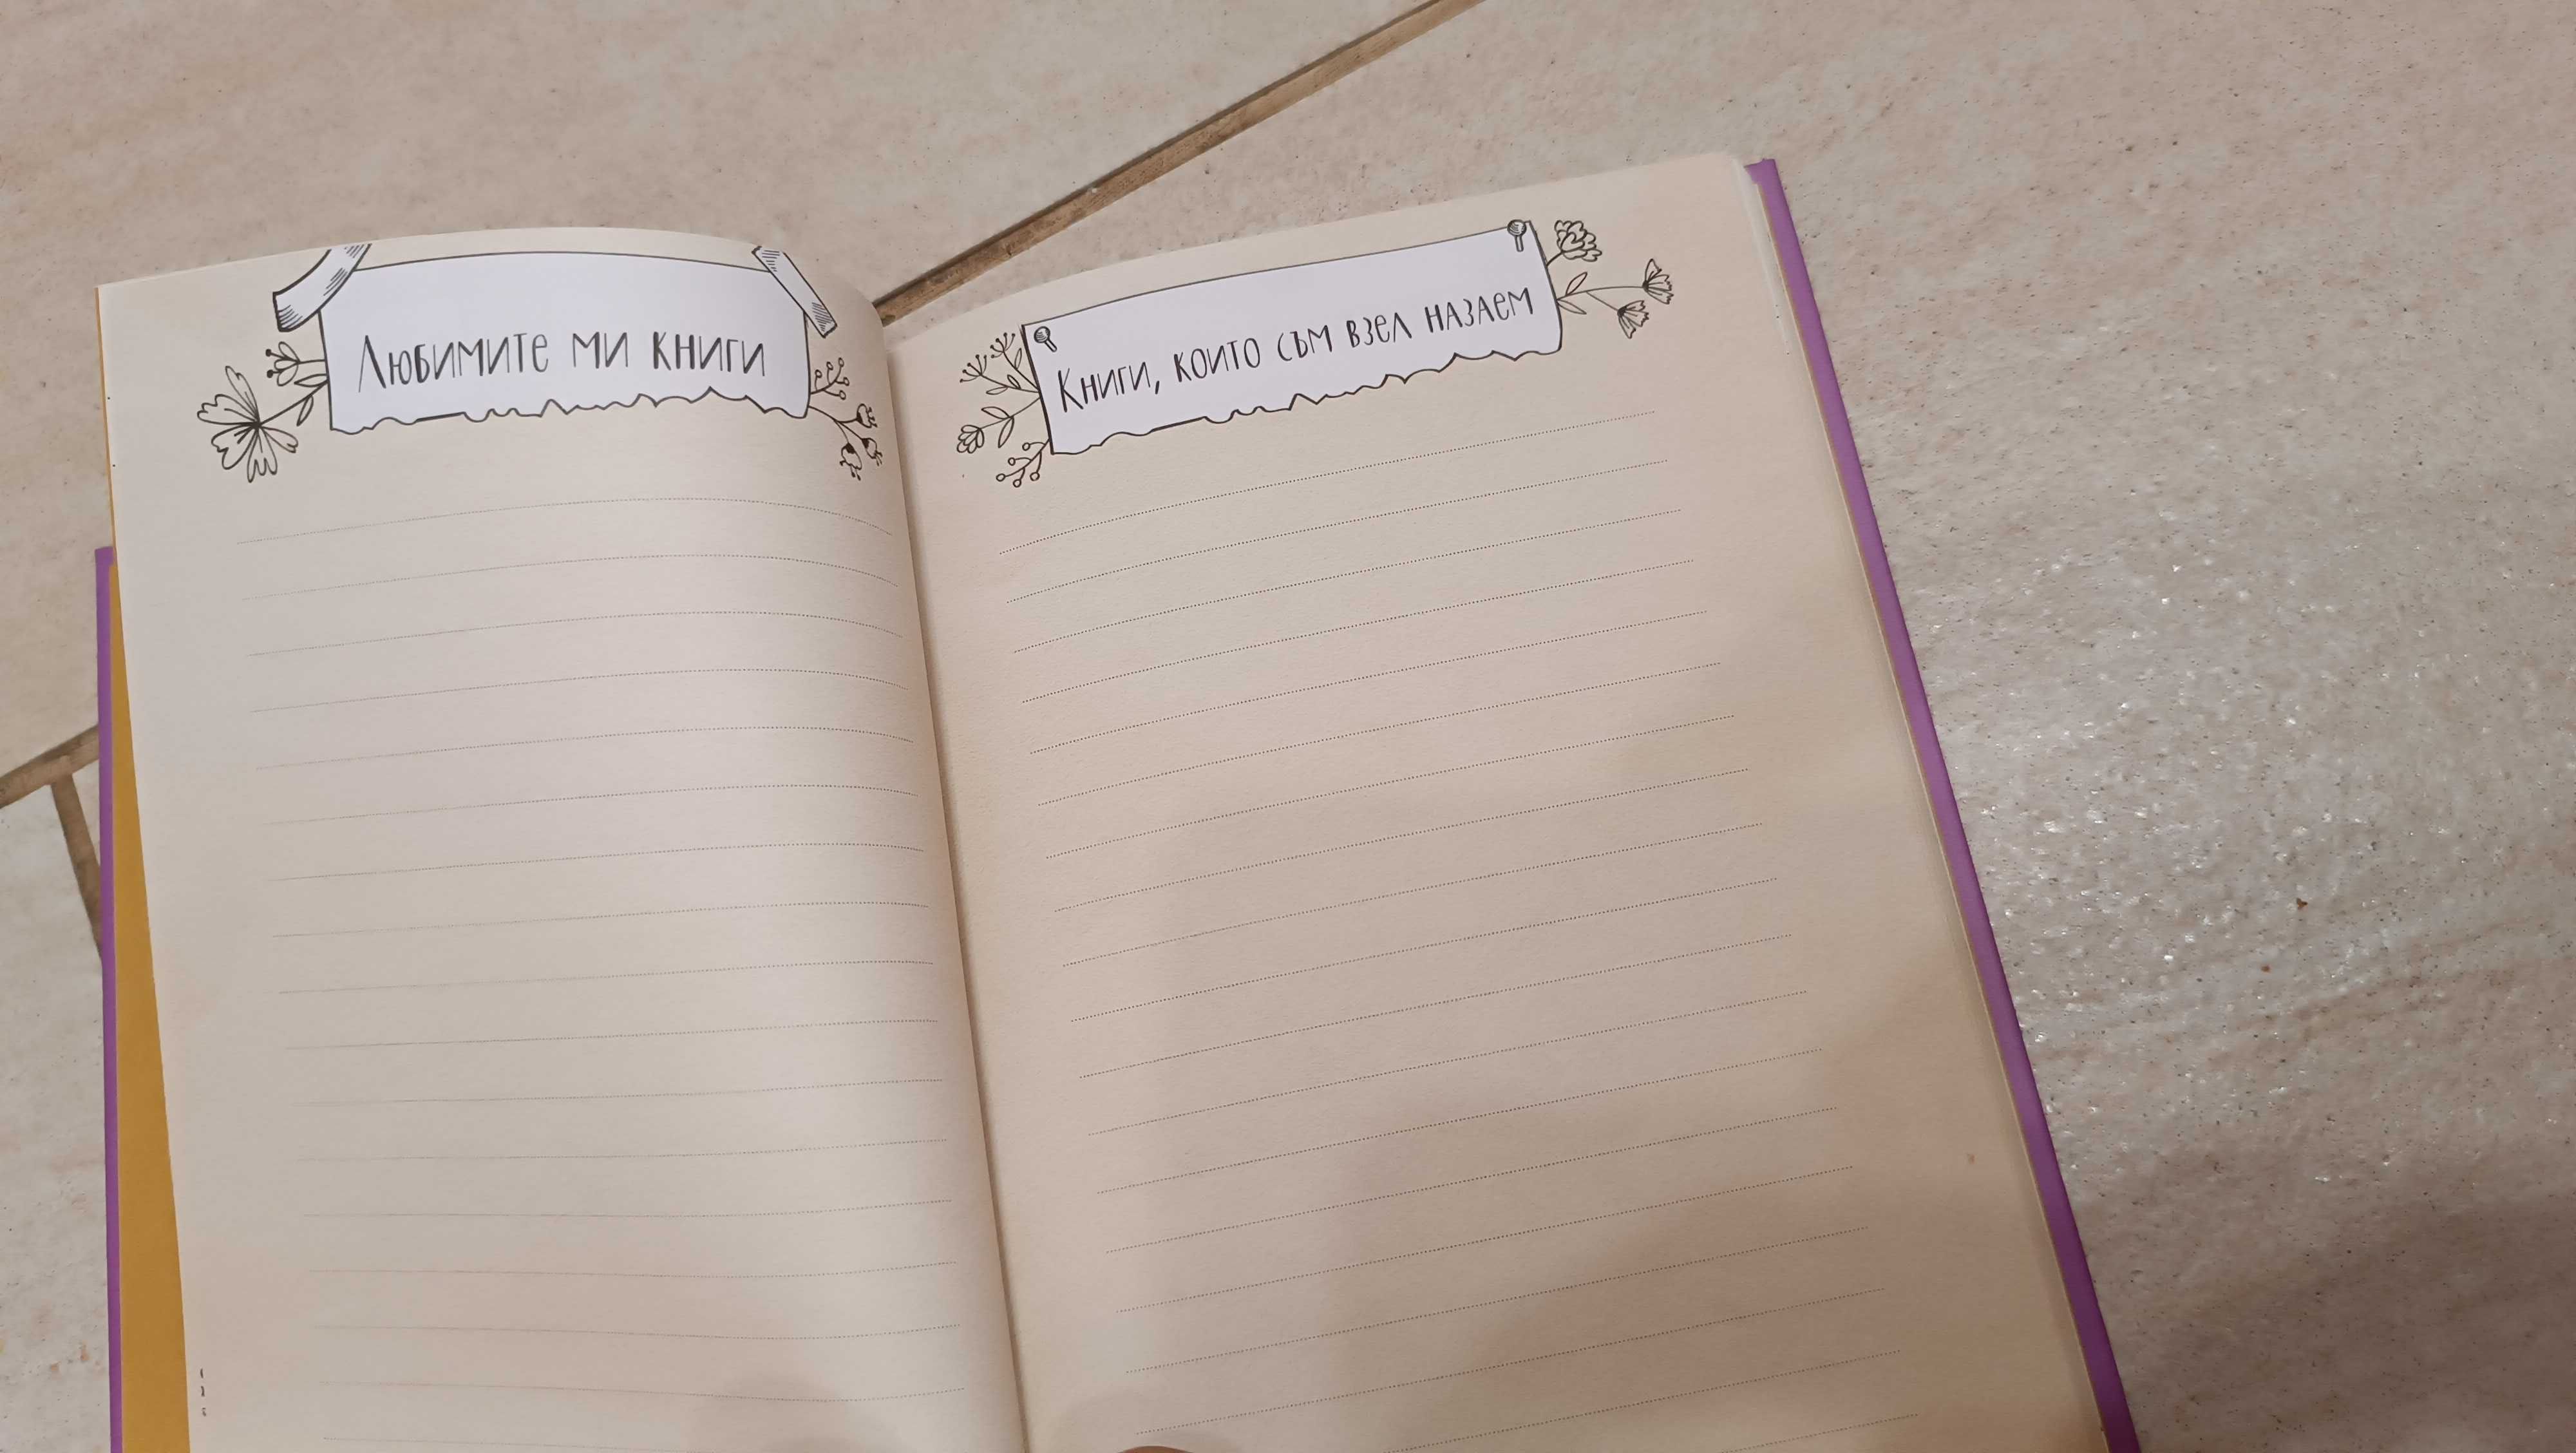 Любимите ми книги
Книги, които съм взел назаем